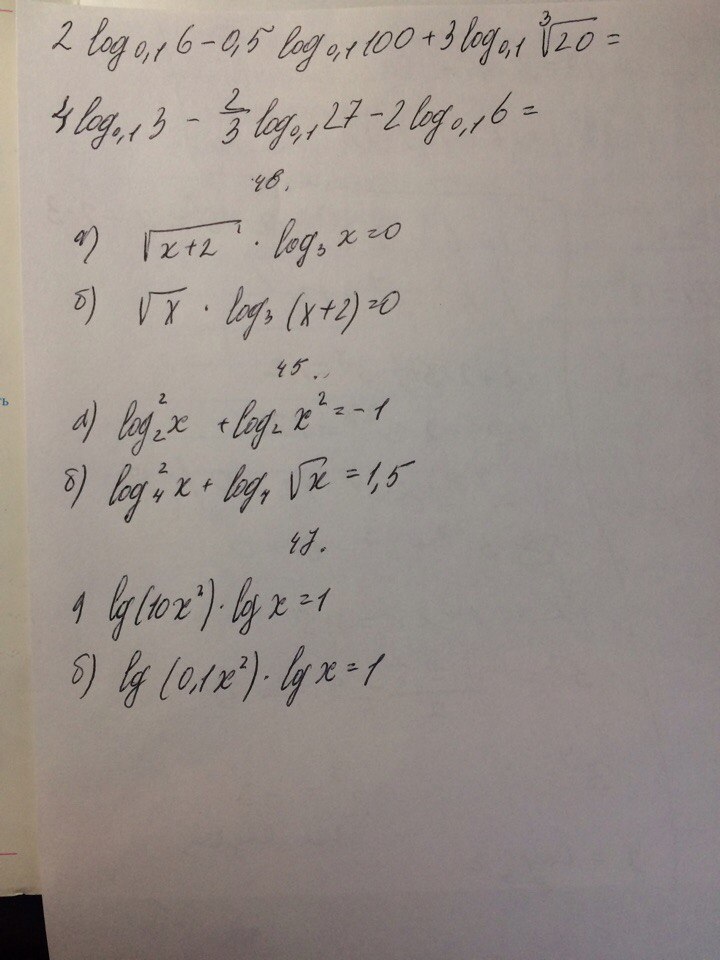 2 log₀,₁ 6 − 0,5 log₀,₁ 100 + 3 log₀,₁ ∛20 =
4 log₀,₁ 3 − 2/3 log₀,₁ 27 − 2 log₀,₁ 6 =
48.
а) √(x+2) · log₃ x = 0
б) √x · log₃ (x+2) = 0
45.
а) log₂² x + log₂ x² = −1
б) log₄² x + log₄ √x = 1,5
47.
а) lg(10x²) · lg x = 1
б) lg (0,1x²) · lg x = 1
ть